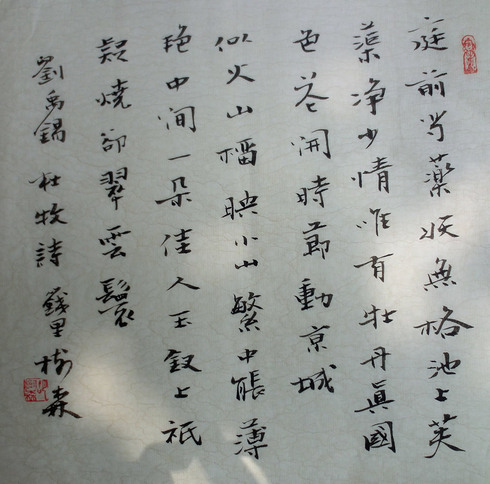 庭前芍薬妖無格池上芙
蕖净少情唯有牡丹真國
色花開時節動京城
似火山榴映小山繁中能薄
艳中间一朵佳人玉釵上祇
疑燒卻翠雲鬟
劉禹錫 杜牧詩 錢里樹森